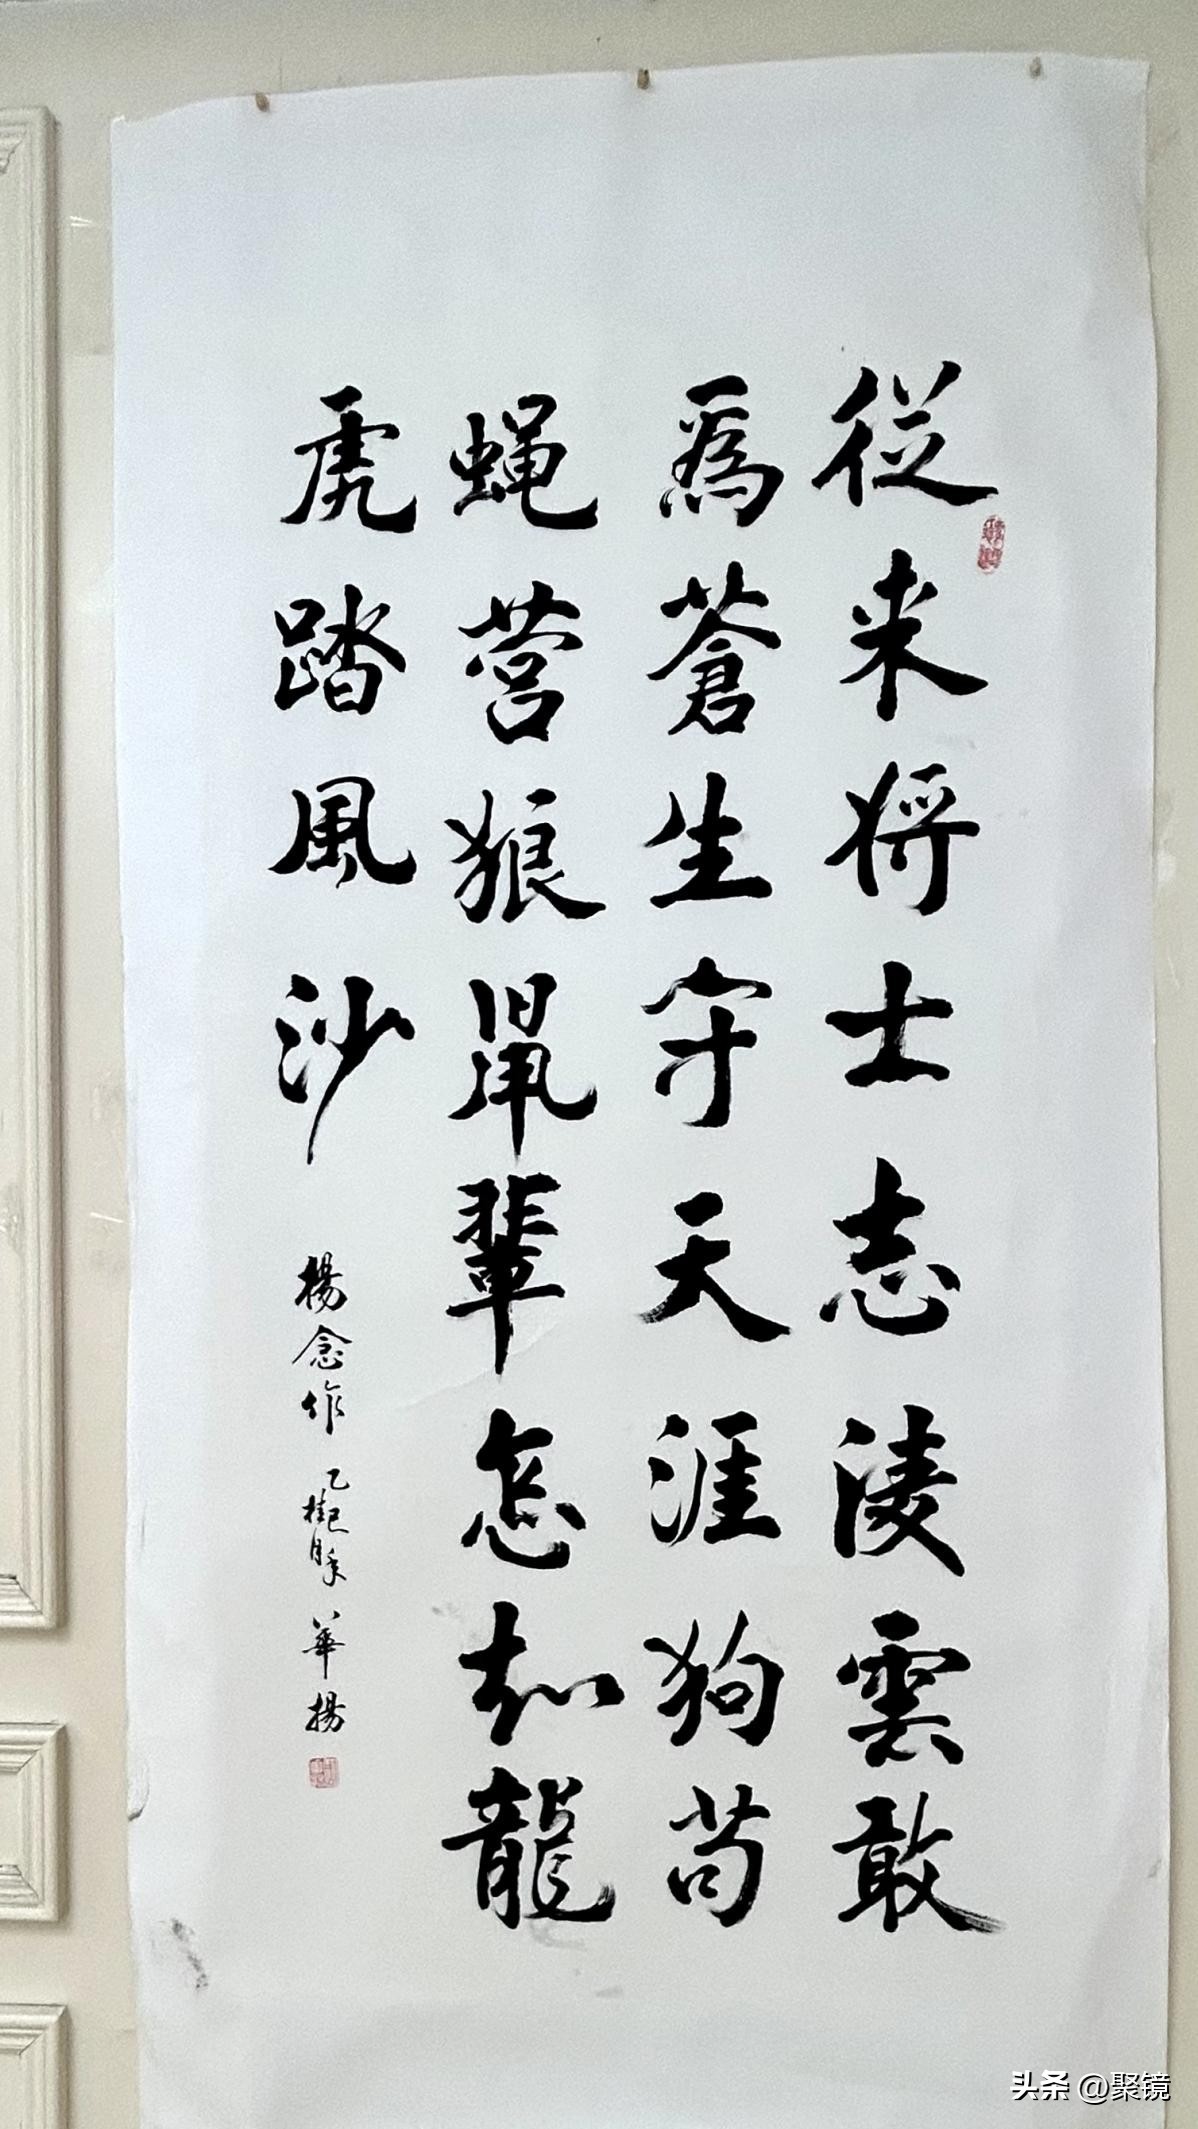 從来将士志凌雲敢
爲蒼生守天涯狗苟
蝇营狼鼠輩怎知龍
虎踏風沙
楊念作 乙巳桂月 華揚
头条 @聚镜